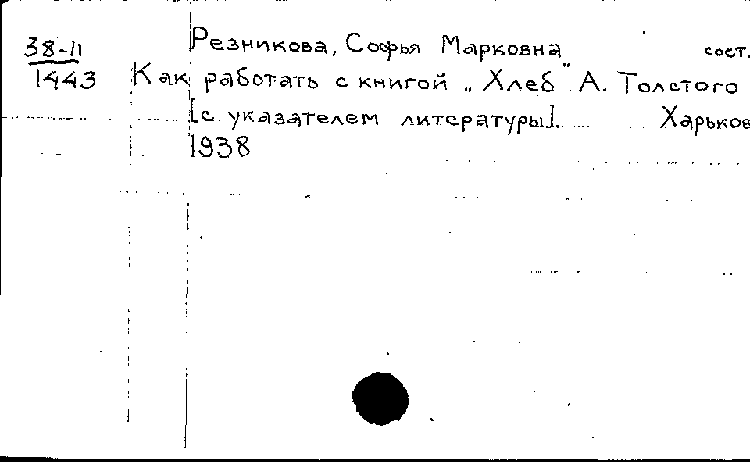 38-11
1443
Резникова, Софья Марковна сост.
Как работать с книгой „Хлеб" А. Толстого
[с указателем литературы]. Харьков
1938